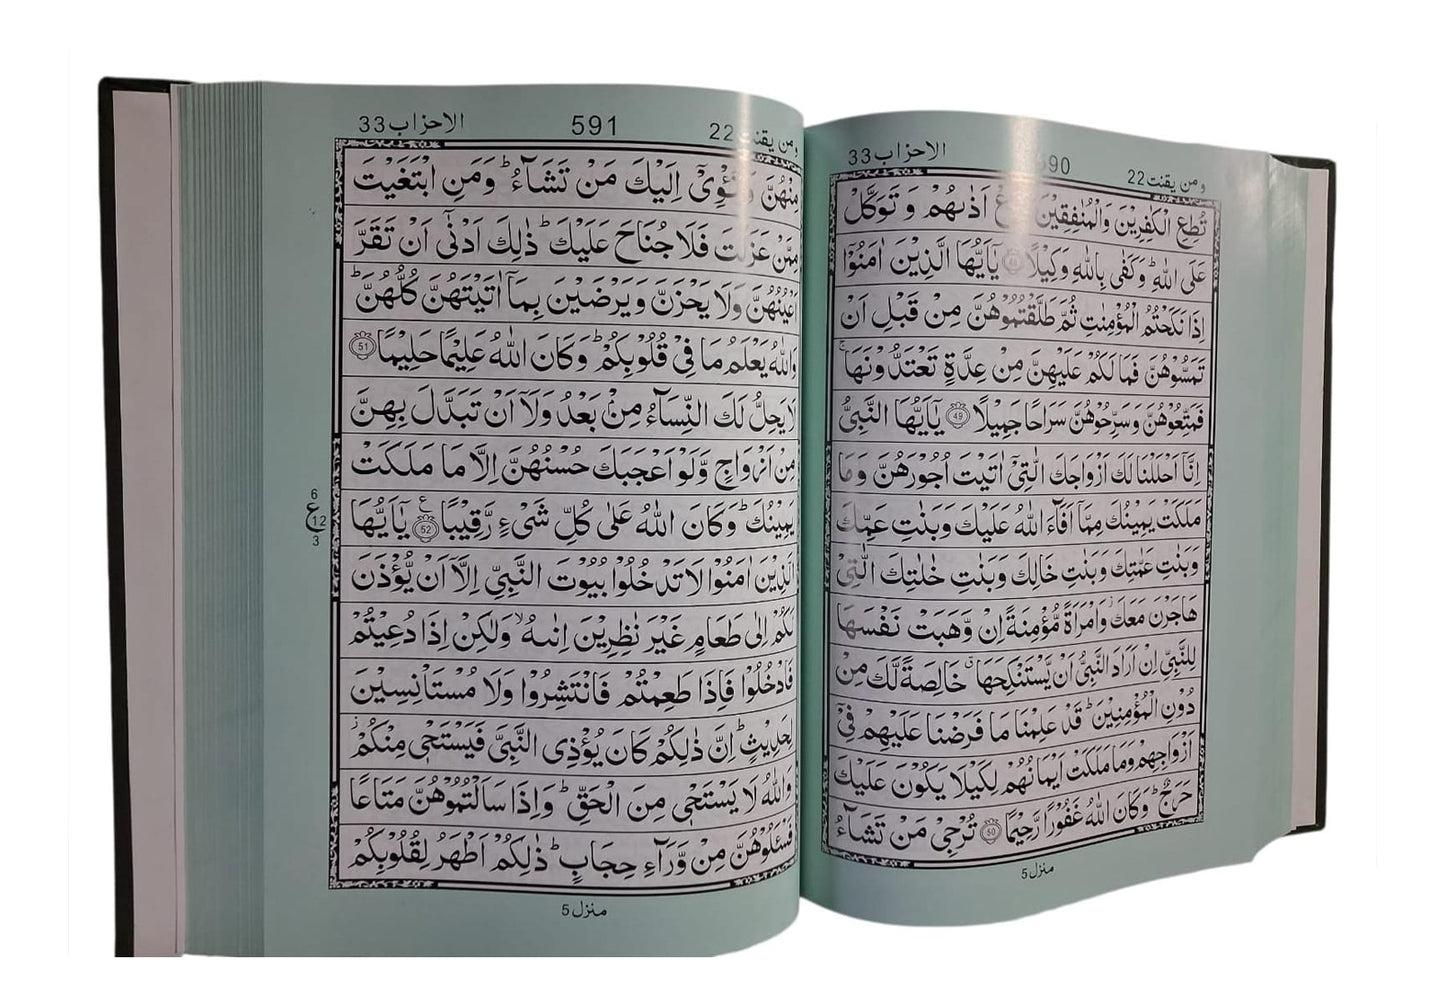 و من يقنت 22
590
الاحزاب 33
تُطِعِ الْكٰفِرِيْنَ وَالْمُنٰفِقِيْنَ اَذٰىهُمْ وَ تَوَكَّلْ
عَلَى اللّٰهِ ؕ وَكَفٰى بِاللّٰهِ وَكِيْلًا ۝48 يٰۤاَيُّهَا الَّذِيْنَ اٰمَنُوْۤا
اِذَا نَكَحْتُمُ الْمُؤْمِنٰتِ ثُمَّ طَلَّقْتُمُوْهُنَّ مِنْ قَبْلِ اَنْ
تَمَسُّوْهُنَّ فَمَا لَكُمْ عَلَيْهِنَّ مِنْ عِدَّةٍ تَعْتَدُّوْنَهَا ۚ
فَمَتِّعُوْهُنَّ وَسَرِّحُوْهُنَّ سَرَاحًا جَمِيْلًا ۝49 يٰۤاَيُّهَا النَّبِيُّ
اِنَّاۤ اَحْلَلْنَا لَكَ اَزْوَاجَكَ الّٰتِيْۤ اٰتَيْتَ اُجُوْرَهُنَّ وَمَا
مَلَكَتْ يَمِيْنُكَ مِمَّاۤ اَفَآءَ اللّٰهُ عَلَيْكَ وَبَنٰتِ عَمِّكَ
وَبَنٰتِ عَمّٰتِكَ وَبَنٰتِ خَالِكَ وَبَنٰتِ خٰلٰتِكَ الّٰتِيْ
هَاجَرْنَ مَعَكَ ؗ وَامْرَاَةً مُّؤْمِنَةً اِنْ وَّهَبَتْ نَفْسَهَا
لِلنَّبِيِّ اِنْ اَرَادَ النَّبِيُّ اَنْ يَّسْتَنْكِحَهَا ۗ خَالِصَةً لَّكَ مِنْ
دُوْنِ الْمُؤْمِنِيْنَ ؕ قَدْ عَلِمْنَا مَا فَرَضْنَا عَلَيْهِمْ فِيْۤ
اَزْوَاجِهِمْ وَمَا مَلَكَتْ اَيْمَانُهُمْ لِكَيْلَا يَكُوْنَ عَلَيْكَ
حَرَجٌ ؕ وَكَانَ اللّٰهُ غَفُوْرًا رَّحِيْمًا ۝50 تُرْجِيْ مَنْ تَشَآءُ
منزل 5
و من يقنت 22
591
الاحزاب 33
مِنْهُنَّ وَتُـْٔوِيْۤ اِلَيْكَ مَنْ تَشَآءُ ؕ وَمَنِ ابْتَغَيْتَ
مِمَّنْ عَزَلْتَ فَلَا جُنَاحَ عَلَيْكَ ؕ ذٰلِكَ اَدْنٰۤى اَنْ تَقَرَّ
اَعْيُنُهُنَّ وَلَا يَحْزَنَّ وَيَرْضَيْنَ بِمَاۤ اٰتَيْتَهُنَّ كُلُّهُنَّ ؕ
وَاللّٰهُ يَعْلَمُ مَا فِيْ قُلُوْبِكُمْ ؕ وَكَانَ اللّٰهُ عَلِيْمًا حَلِيْمًا ۝51
لَا يَحِلُّ لَكَ النِّسَآءُ مِنْۢ بَعْدُ وَلَاۤ اَنْ تَبَدَّلَ بِهِنَّ
مِنْ اَزْوَاجٍ وَّلَوْ اَعْجَبَكَ حُسْنُهُنَّ اِلَّا مَا مَلَكَتْ
يَمِيْنُكَ ؕ وَكَانَ اللّٰهُ عَلٰى كُلِّ شَيْءٍ رَّقِيْبًا ۝52 ع يٰۤاَيُّهَا
6
ع 12
3
الَّذِيْنَ اٰمَنُوْا لَا تَدْخُلُوْا بُيُوْتَ النَّبِيِّ اِلَّاۤ اَنْ يُّؤْذَنَ
لَكُمْ اِلٰى طَعَامٍ غَيْرَ نٰظِرِيْنَ اِنٰىهُ ۙ وَلٰكِنْ اِذَا دُعِيْتُمْ
فَادْخُلُوْا فَاِذَا طَعِمْتُمْ فَانْتَشِرُوْا وَلَا مُسْتَاْنِسِيْنَ
لِحَدِيْثٍ ؕ اِنَّ ذٰلِكُمْ كَانَ يُؤْذِى النَّبِيَّ فَيَسْتَحْيٖ مِنْكُمْ ؗ
وَاللّٰهُ لَا يَسْتَحْيٖ مِنَ الْحَقِّ ؕ وَاِذَا سَاَلْتُمُوْهُنَّ مَتَاعًا
فَسْـَٔلُوْهُنَّ مِنْ وَّرَآءِ حِجَابٍ ؕ ذٰلِكُمْ اَطْهَرُ لِقُلُوْبِكُمْ
منزل 5